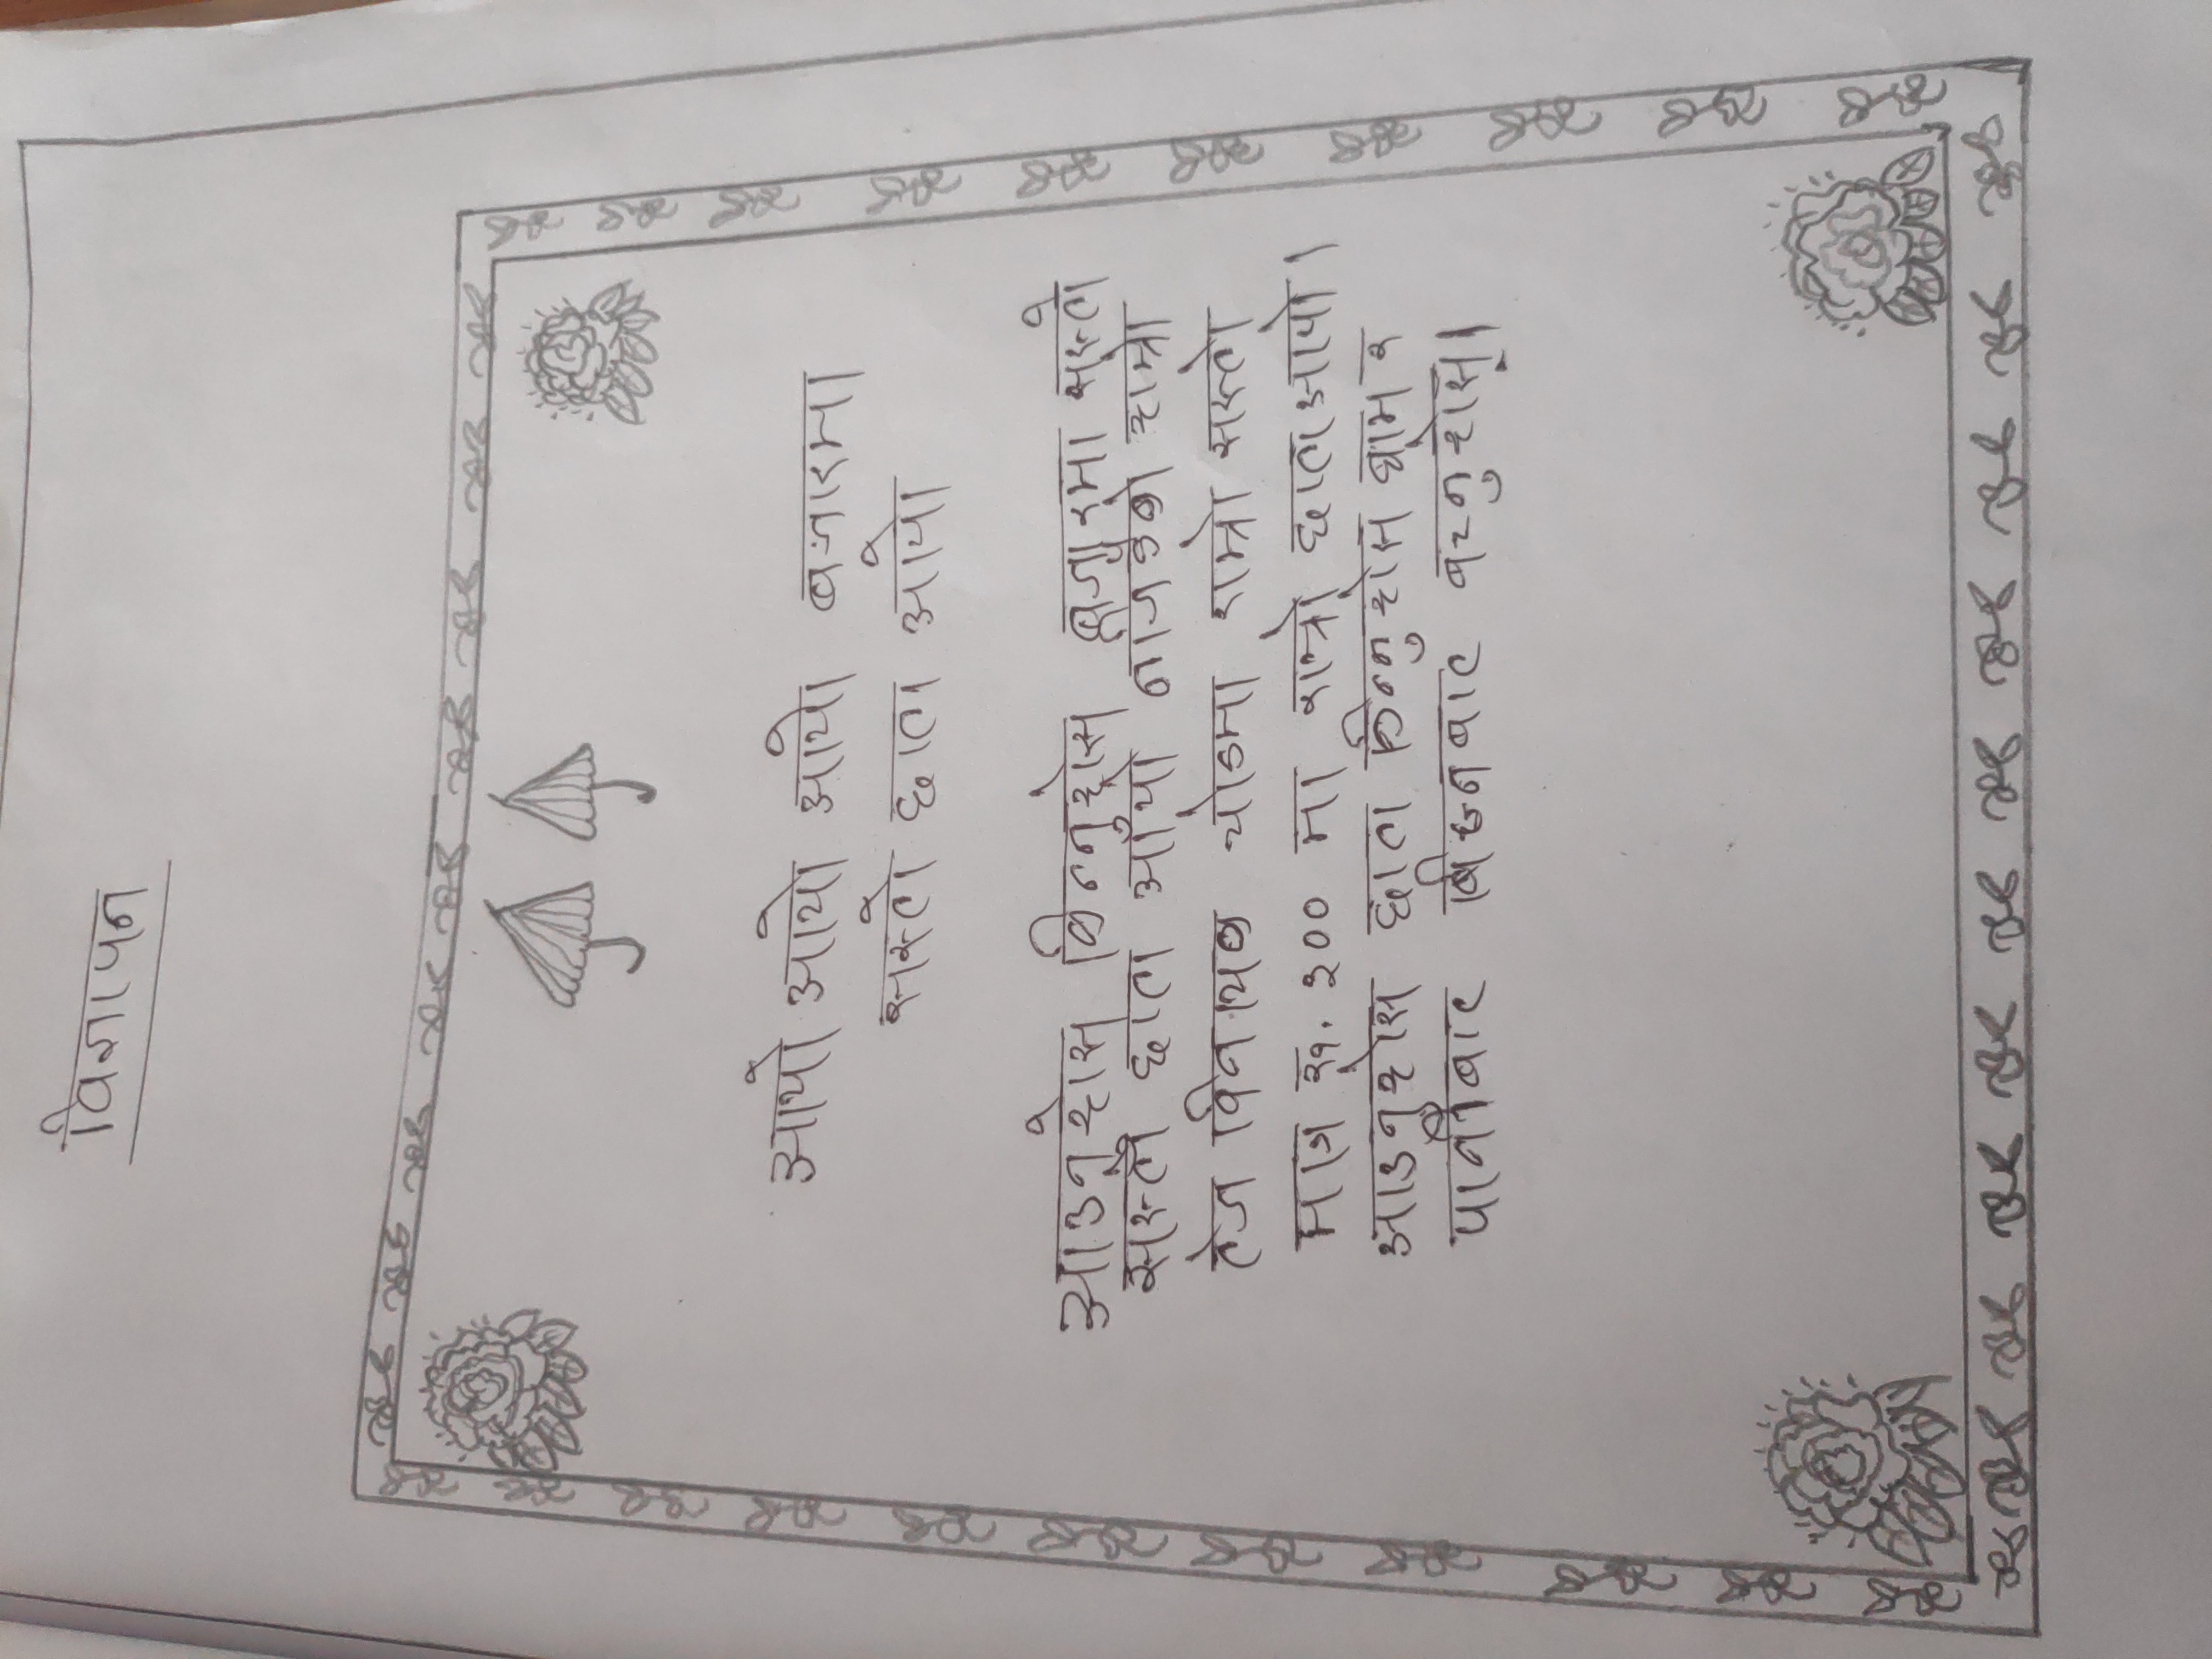 विज्ञापन
आयो आयो आयो बजारमा
सस्तो छाता आयो
आउनुहोस किन्नुहोस बजारमा सस्तो
सस्तो छाता आयो हाम्रो
तेज विनायक चोकमा राम्रो सस्तो
मात्र रु. ३०० मा राम्रो छाता आयो।
आउनुहोस छाता किन्नुहोस घाम र
पानीबाट बच्नुहोस्।